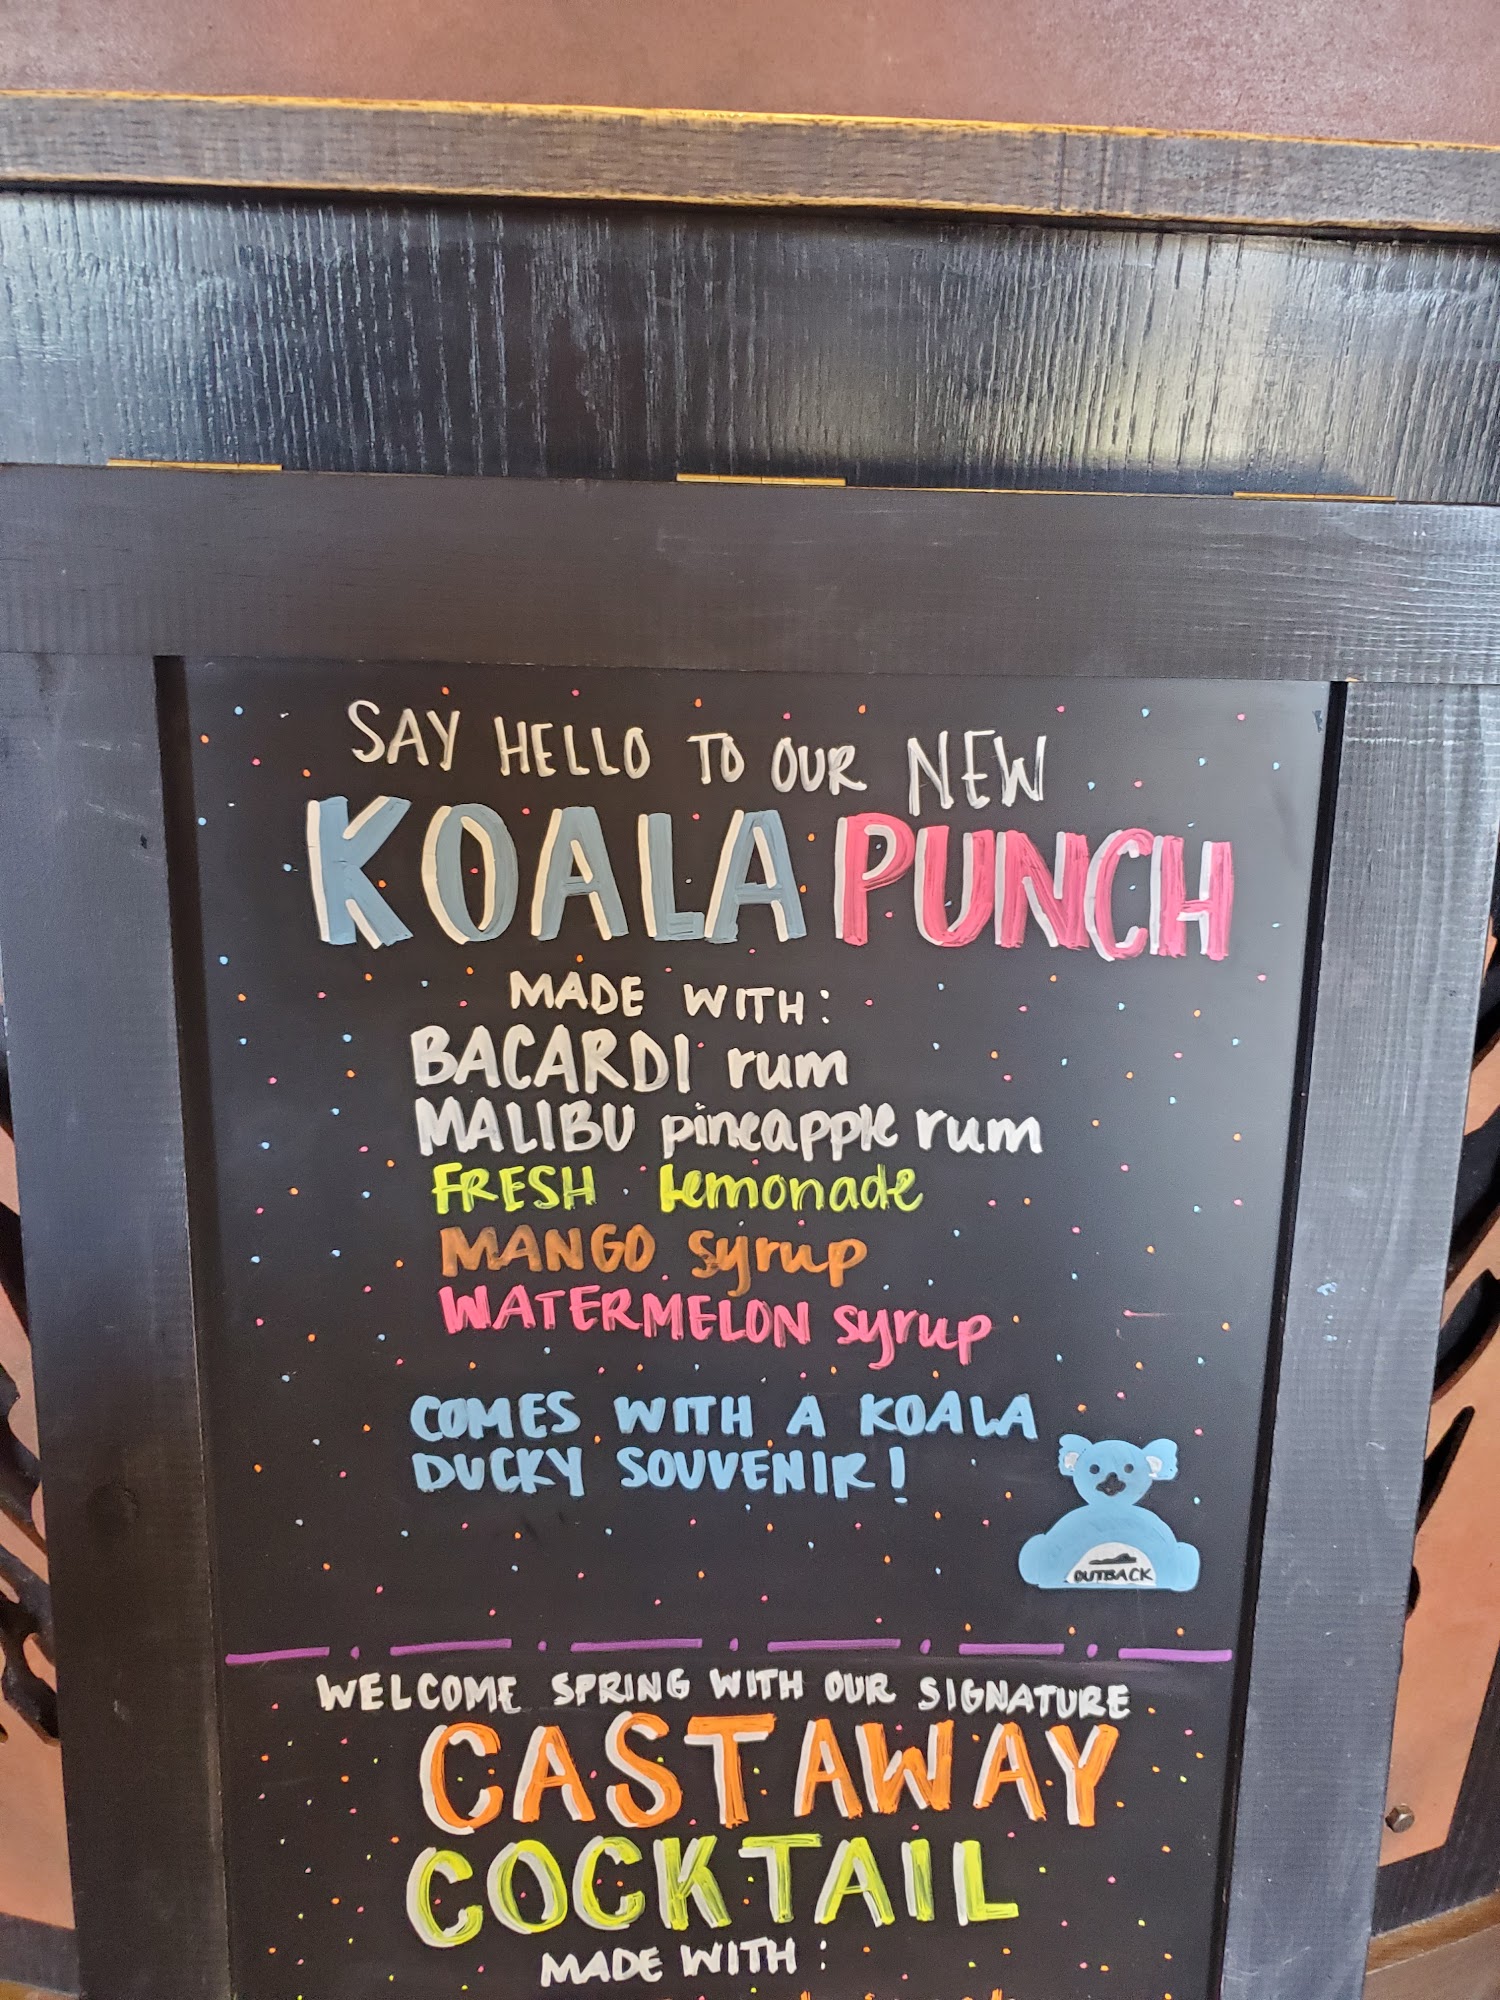 SAY HELLO TO OUR NEW
KOALA PUNCH
MADE WITH:
BACARDI rum
MALIBU pineapple rum
FRESH lemonade
MANGO syrup
WATERMELON syrup
COMES WITH A KOALA
DUCKY SOUVENIR!
OUTBACK
WELCOME SPRING WITH OUR SIGNATURE
CASTAWAY
COCKTAIL
MADE WITH: